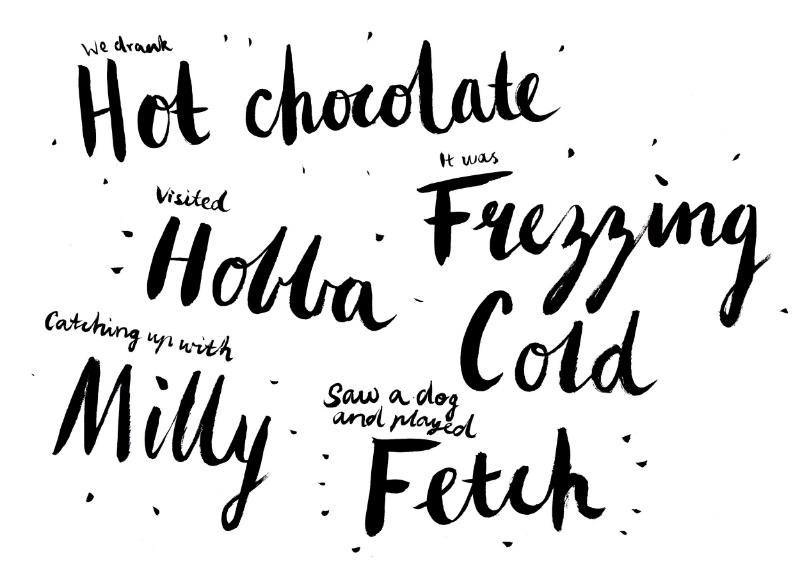 We drank
Hot chocolate
It was
Frezzing
Cold
Visited
Hobba
Catching up with
Milly
Saw a dog
and played
Fetch